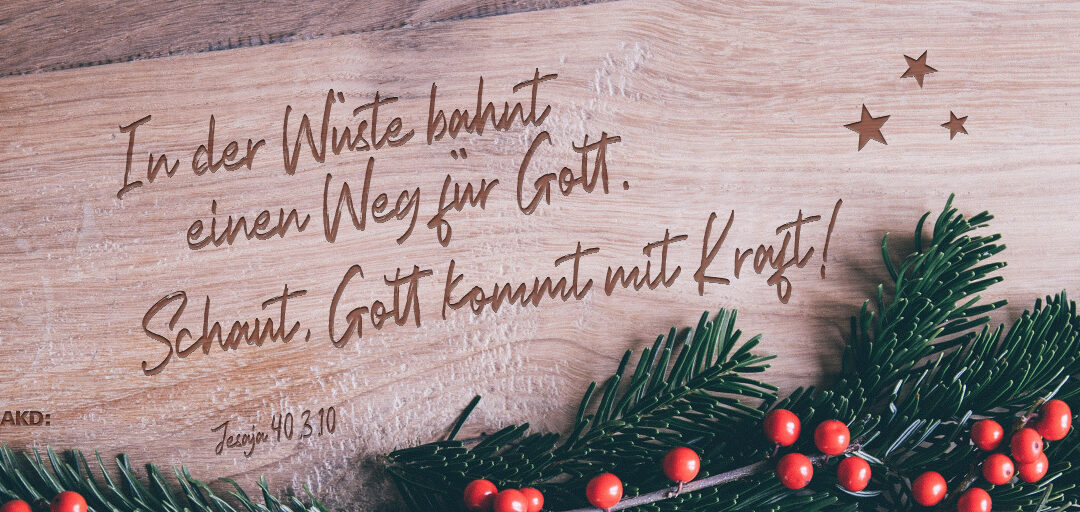 In der Wüste bahnt
einen Weg für Gott.
Schaut, Gott kommt mit Kraft!
AKD:
Jesaja 40 3.10